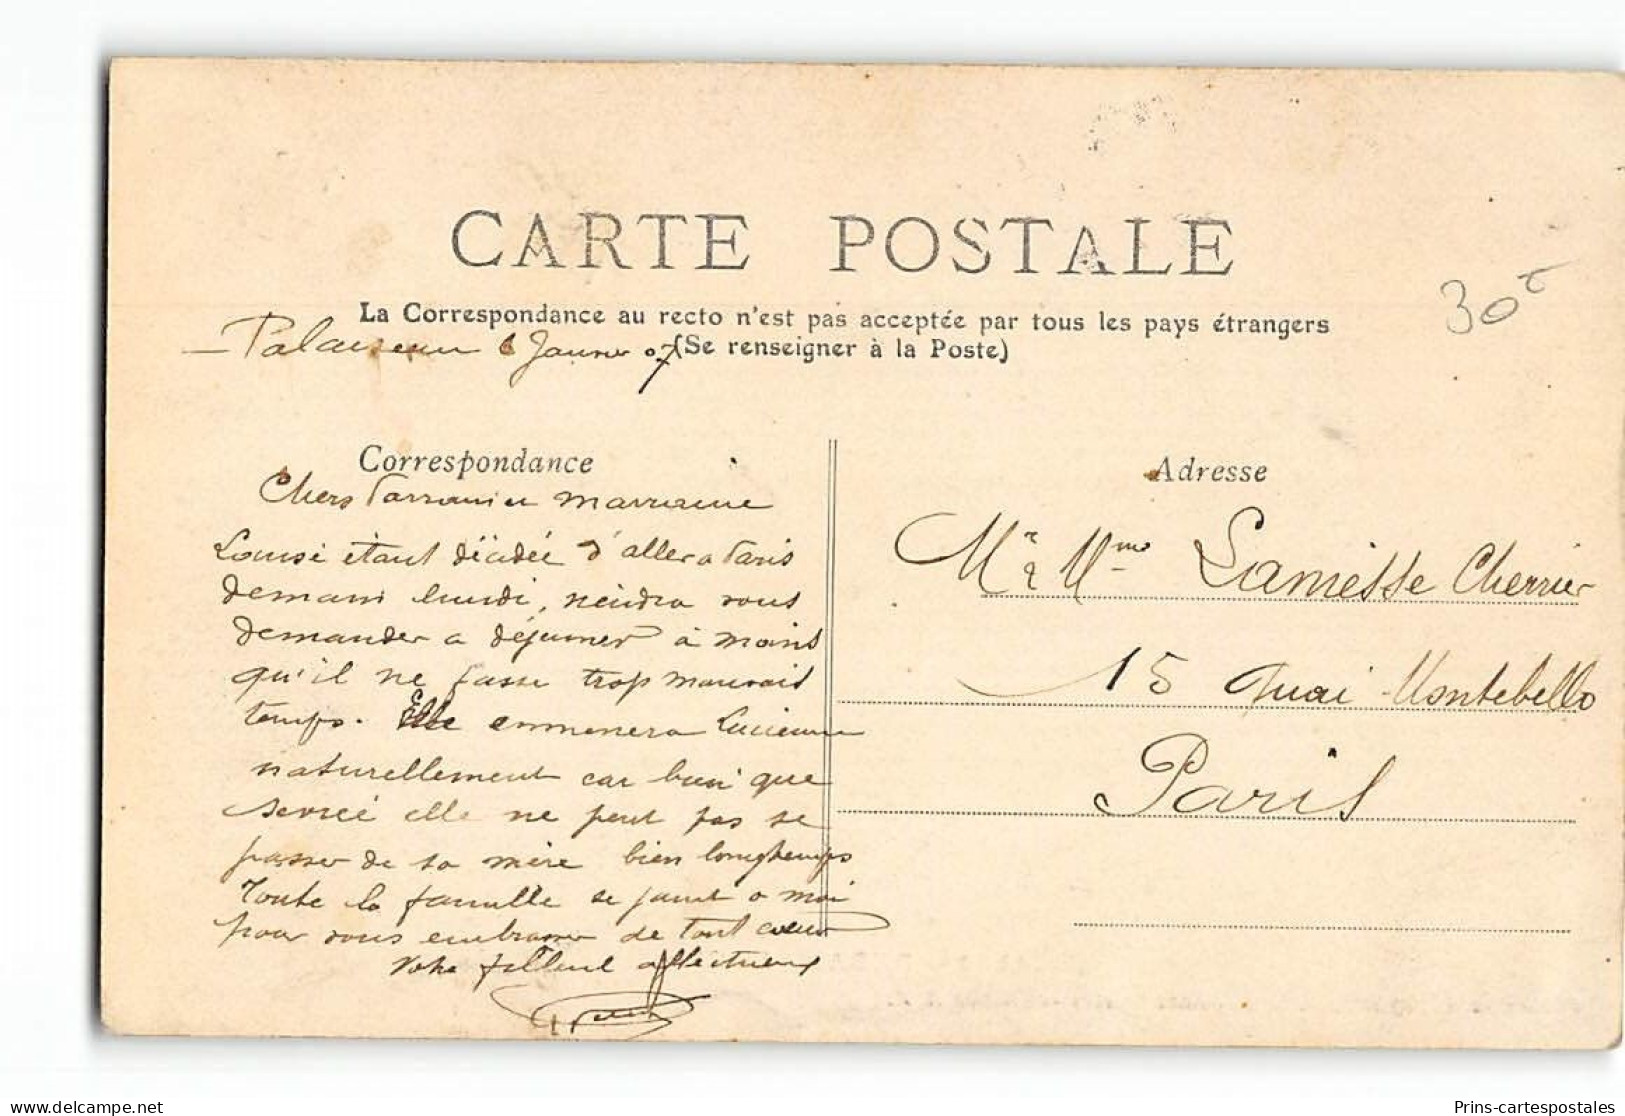 CARTE POSTALE
La Correspondance au recto n'est pas acceptée par tous les pays étrangers
(Se renseigner à la Poste)
Palaiseau 6 Janvier 07
30
Correspondance
Chers Parrain et Marraine
Louise étant décidée d'aller a Paris
demain lundi, viendra vous
demander a déjeuner à moins
qu'il ne fasse trop mauvais
temps. Elle emmenera Lucienne
naturellement car bien que
sevrée elle ne peut pas se
passer de sa mère bien longtemps
Toute la famille se joint a moi
pour vous embrasser de tout coeur
Votre filleul affectueux
Adresse
Mr & Mme Lamesse Cherrier
15 Quai Montebello
Paris
Prins-cartespostales
www.delcampe.net